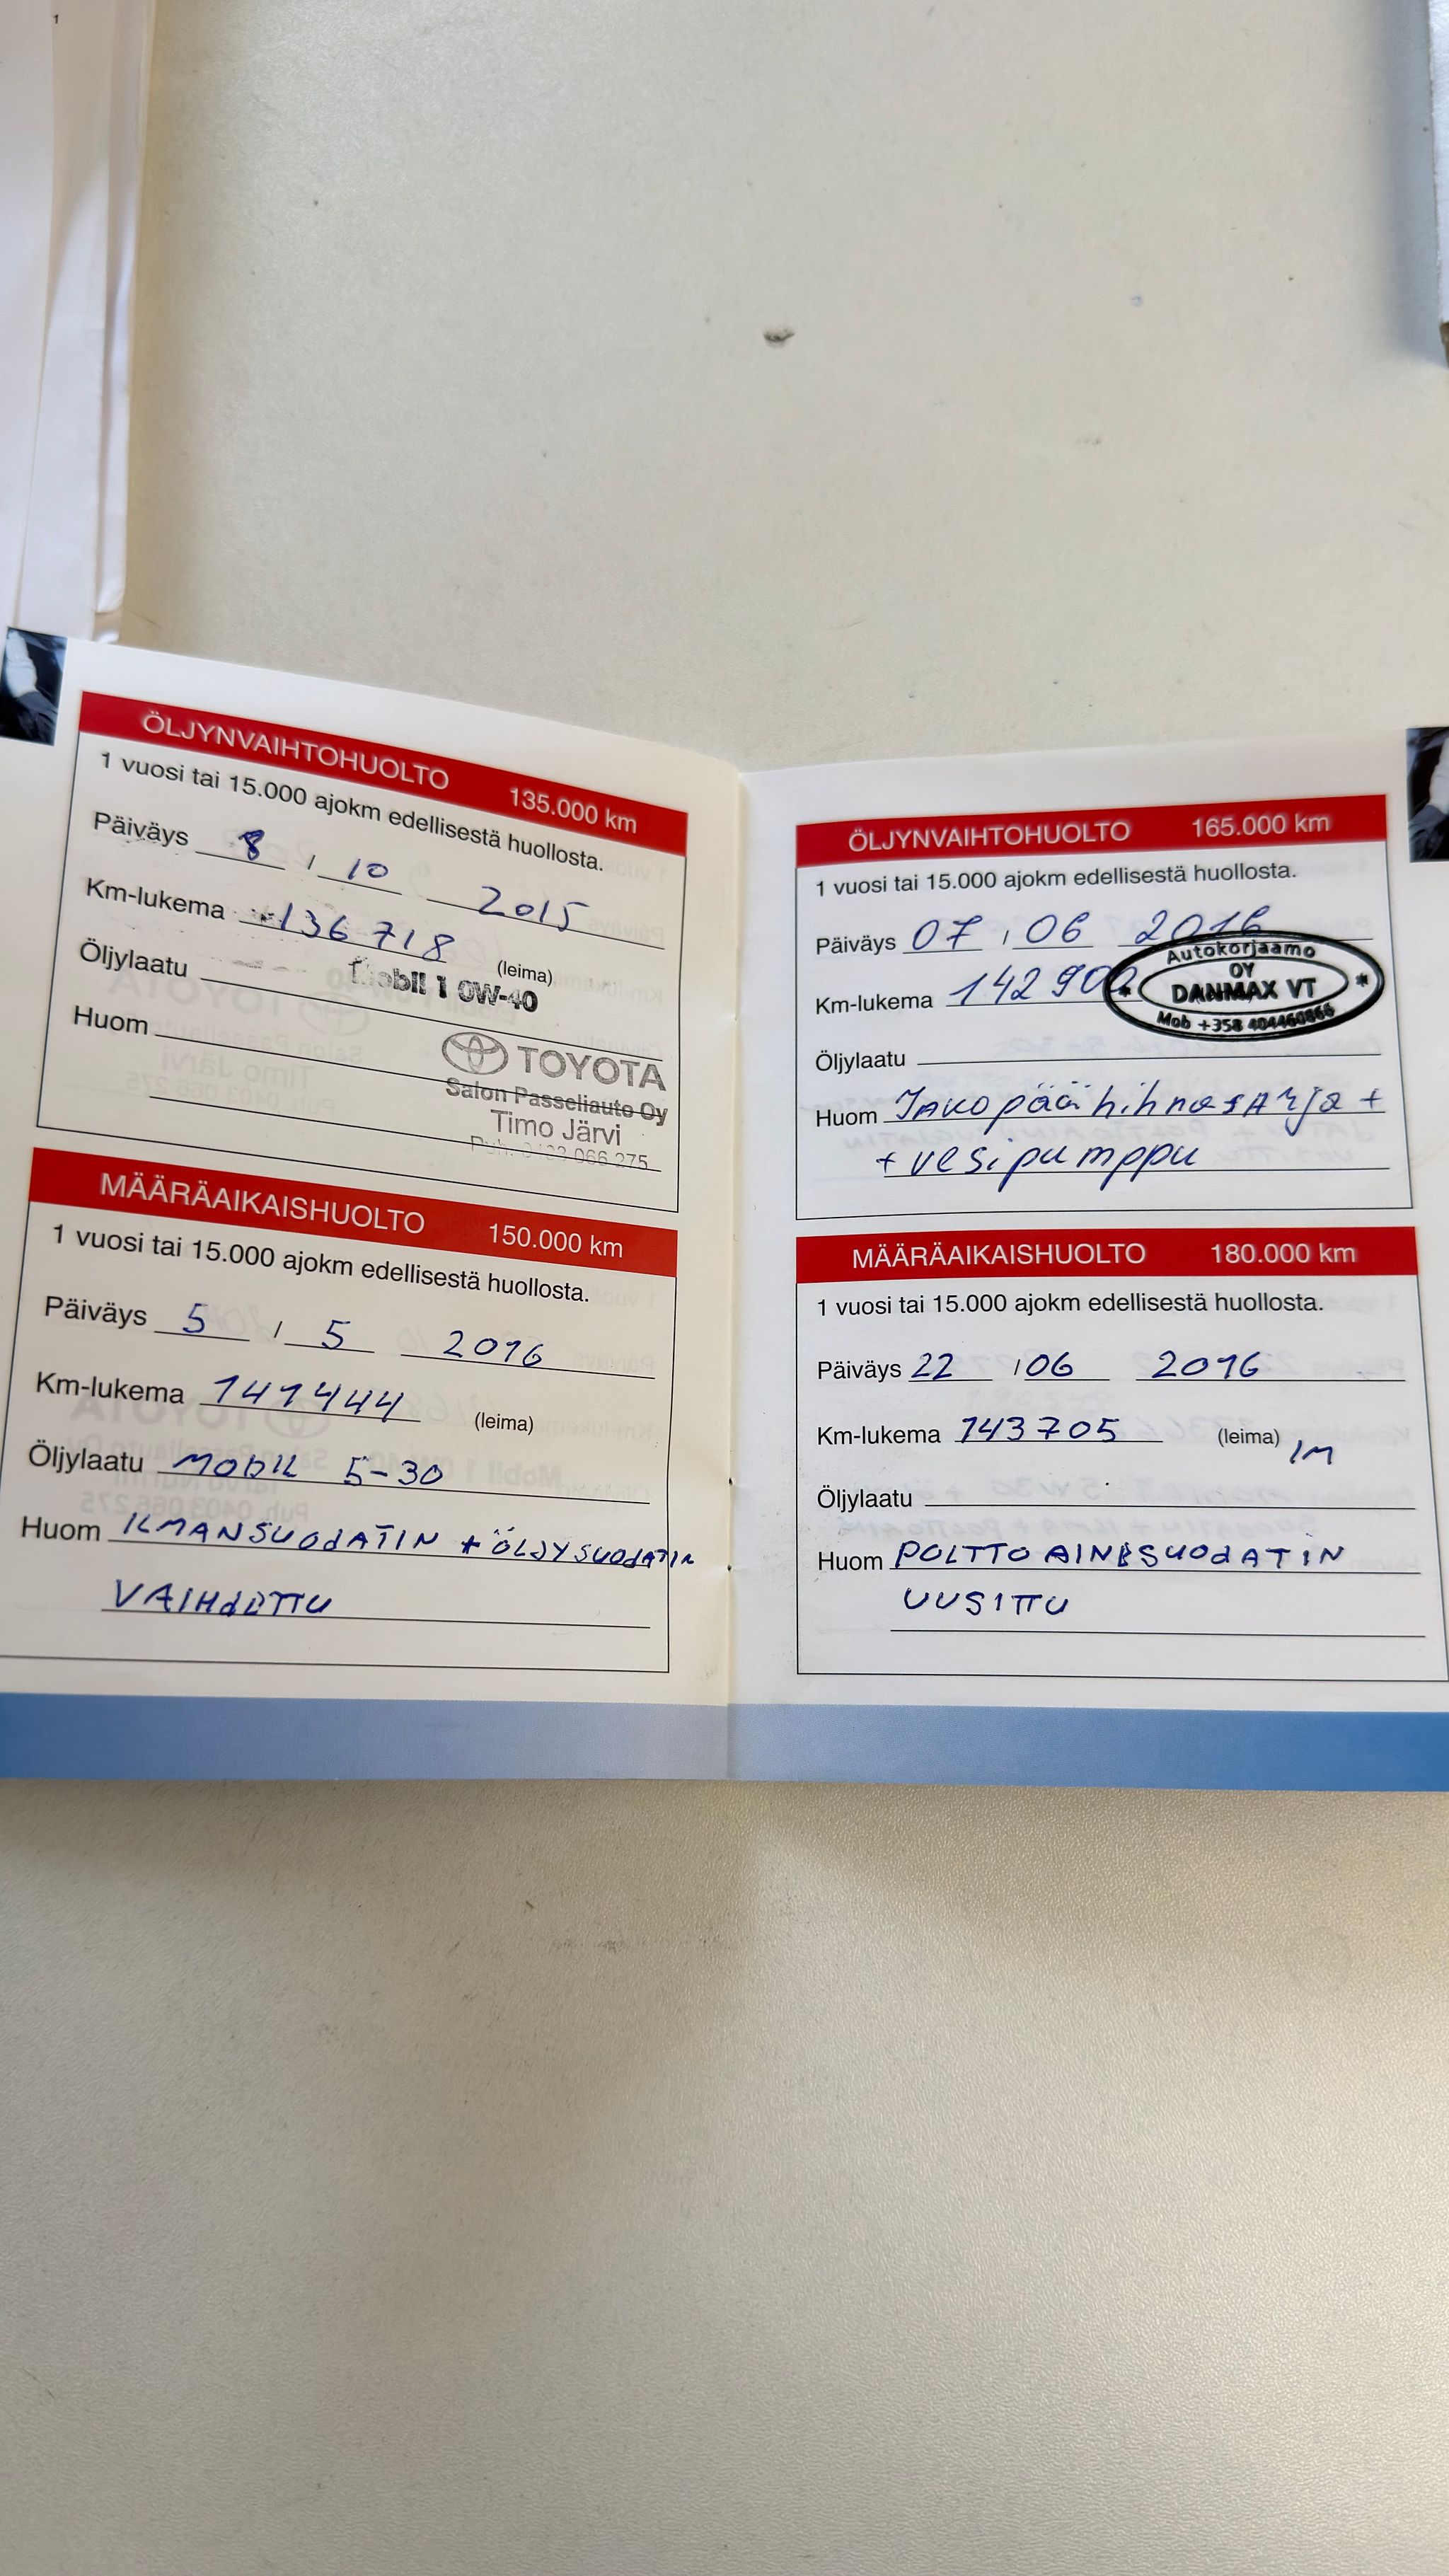 ÖLJYNVAIHTOHUOLTO 135.000 km
1 vuosi tai 15.000 ajokm edellisestä huollosta.
Päiväys 8 / 10 2015
Km-lukema 136 718
(leima)
Öljylaatu Mobil 1 0W-40
Huom
TOYOTA
Salon Passeliauto Oy
Timo Järvi
Puh. 066 275
MÄÄRÄAIKAISHUOLTO 150.000 km
1 vuosi tai 15.000 ajokm edellisestä huollosta.
Päiväys 5 / 5 2016
Km-lukema 141444 (leima)
Öljylaatu MOBIL 5-30
Huom ILMANSUOdATIN + ÖLJYSUOdATIN
VAIHdETTU
ÖLJYNVAIHTOHUOLTO 165.000 km
1 vuosi tai 15.000 ajokm edellisestä huollosta.
Päiväys 07 / 06 2016
Km-lukema
Autokorjaamo
OY
DANMAX VT
Mob +358 404460866
Öljylaatu
Huom Jakopäähihnasarja +
+ vesipumppu
MÄÄRÄAIKAISHUOLTO 180.000 km
1 vuosi tai 15.000 ajokm edellisestä huollosta.
Päiväys 22 / 06 2016
Km-lukema 143705 (leima) IM
Öljylaatu
Huom POLTTOAINESUOdATIN
UUSITTU